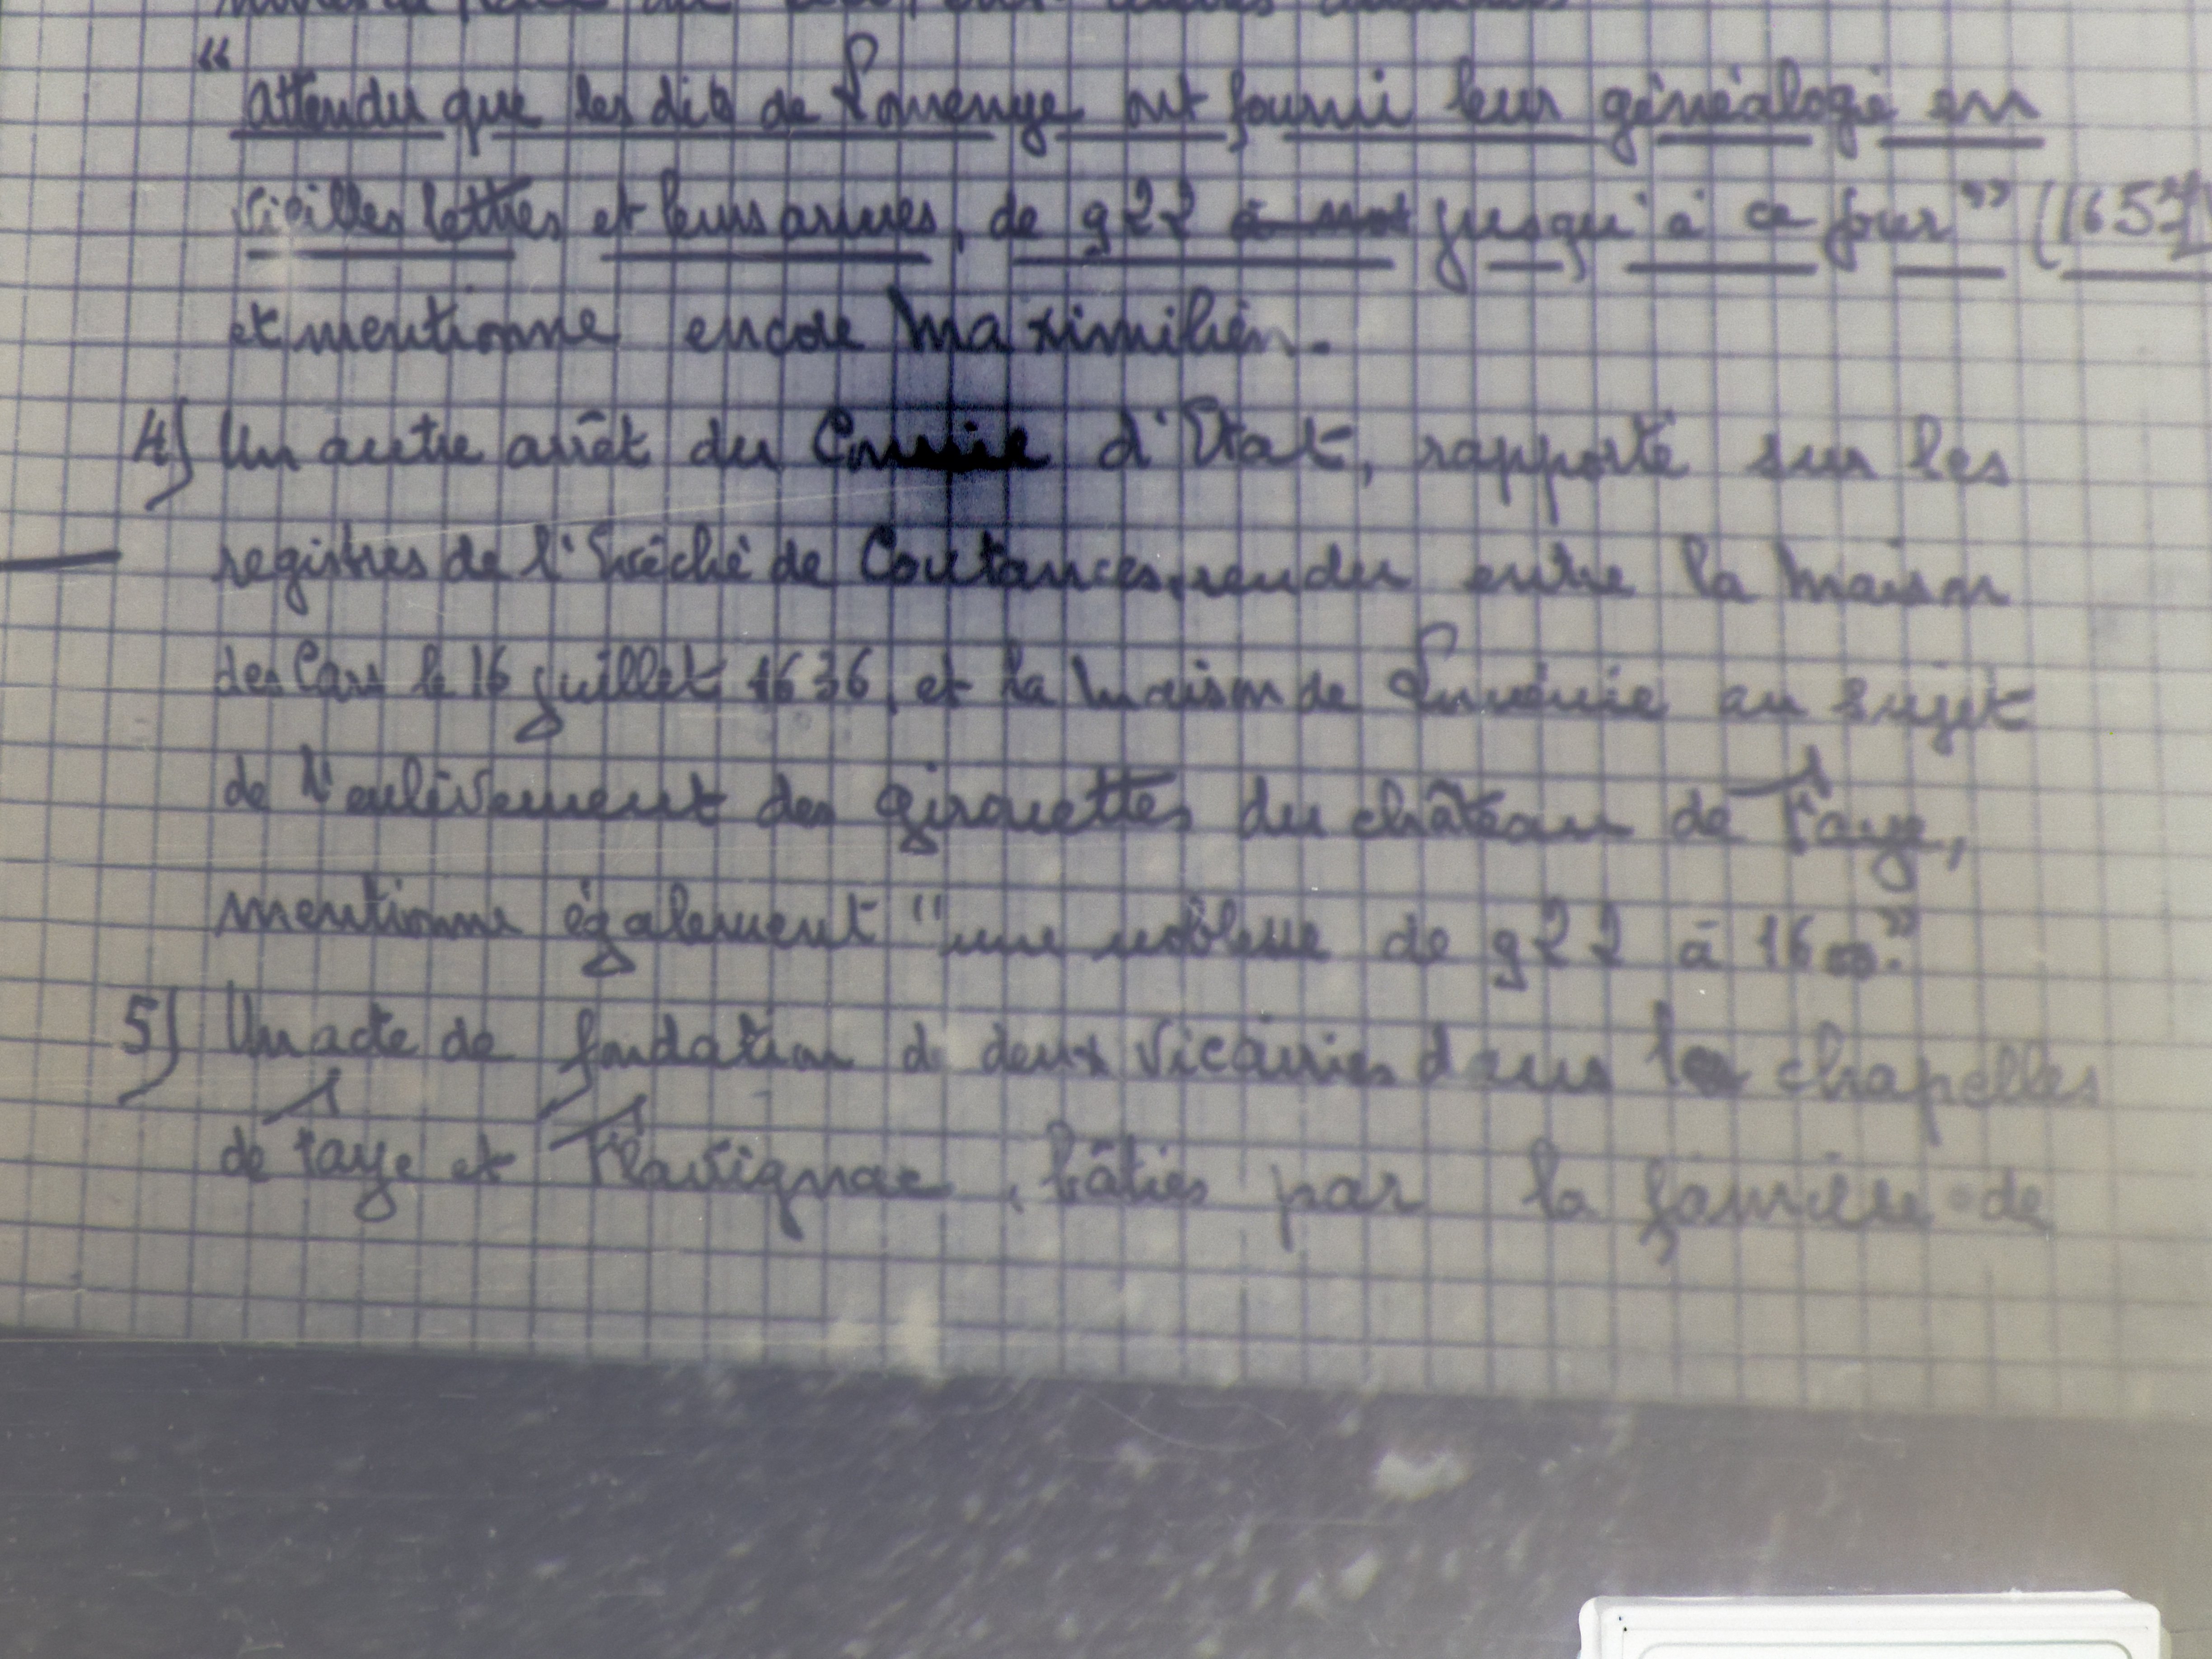 "attendu que les dits de Lomenye ont fourni leur généalogie en
vieilles lettres et leurs armes, de 922 jusqu'à ce jour" (1657)
et mentionne encore Maximilien.
4) Un autre arrêt du Conseil d'Etat, rapporté sur les
registres de l'Evêché de Coutances, rendu entre la Maison
des Cars le 16 juillet 1636, et la Maison de Loménie au sujet
de l'enlèvement des girouettes du château de Faye,
mentionne également "une noblesse de 922 à 1600".
5) Un acte de fondation de deux Vicairies dans les chapelles
de Faye et Flavignac, bâties par la famille de